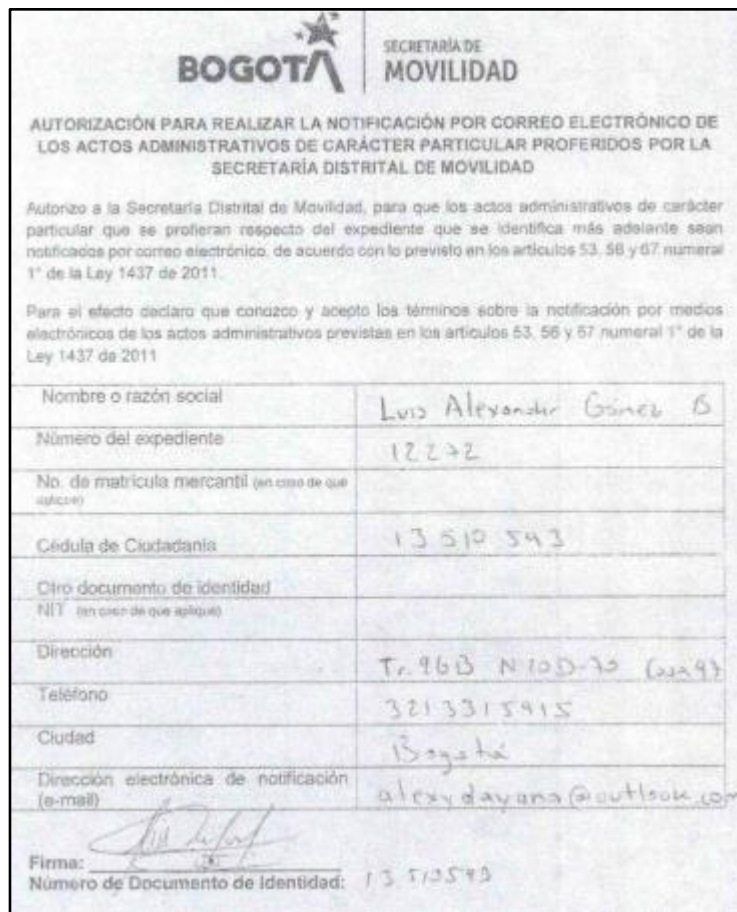 BOGOTÁ
SECRETARÍA DE
MOVILIDAD
AUTORIZACIÓN PARA REALIZAR LA NOTIFICACIÓN POR CORREO ELECTRÓNICO DE
LOS ACTOS ADMINISTRATIVOS DE CARÁCTER PARTICULAR PROFERIDOS POR LA
SECRETARÍA DISTRITAL DE MOVILIDAD
Autorizo a la Secretaría Distrital de Movilidad, para que los actos administrativos de carácter
particular que se profieran respecto del expediente que se identifica más adelante sean
notificados por correo electrónico, de acuerdo con lo previsto en los artículos 53, 56 y 67 numeral
1° de la Ley 1437 de 2011.
Para el efecto declaro que conozco y acepto los términos sobre la notificación por medios
electrónicos de los actos administrativos previstas en los artículos 53, 56 y 67 numeral 1° de la
Ley 1437 de 2011
Nombre o razón social
Luis Alexander Gómez B
Número del expediente
12272
No. de matrícula mercantil (en caso de que
aplique)
Cédula de Ciudadanía
13 510 543
Otro documento de identidad
NIT (en caso de que aplique)
Dirección
Tr. 96B N 20D-70 Casa 97
Teléfono
3213315915
Ciudad
Bogotá
Dirección electrónica de notificación
(e-mail)
alexydayana@outlook.com
Firma:
Número de Documento de Identidad: 13 510543